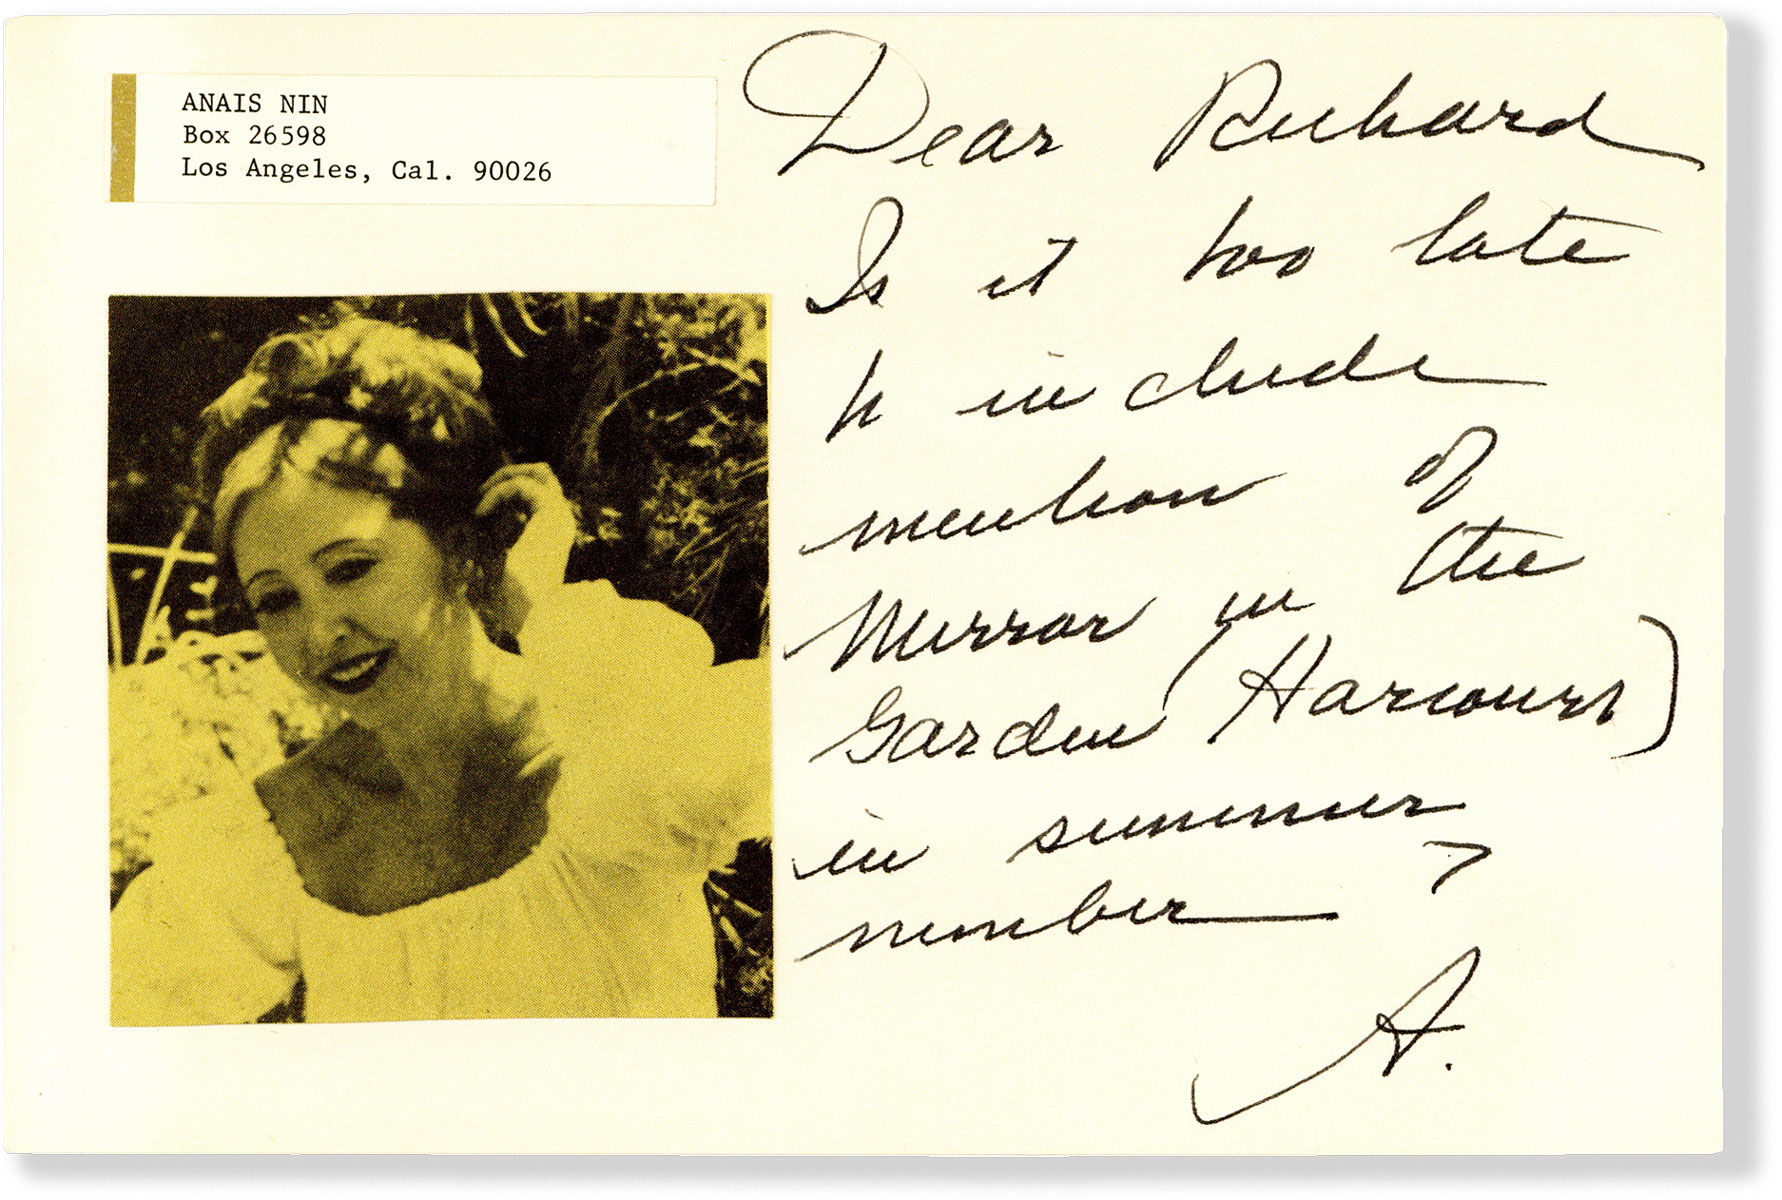 ANAIS NIN
Box 26598
Los Angeles, Cal. 90026
Dear Richard
Is it too late
to include
mention of
Mirror in the
Garden (Harcourt)
in summer
number ?
A.